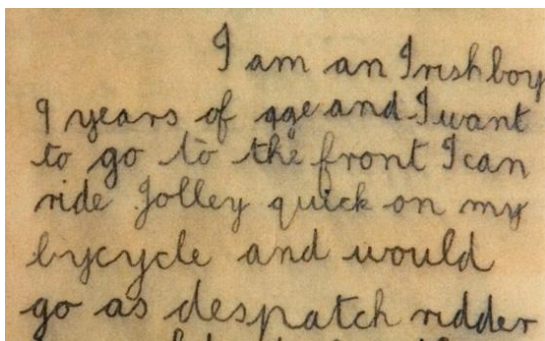 I am an Irish boy
9 years of age and I want
to go to the front I can
ride Jolley quick on my
bycycle and would
go as despatch ridder